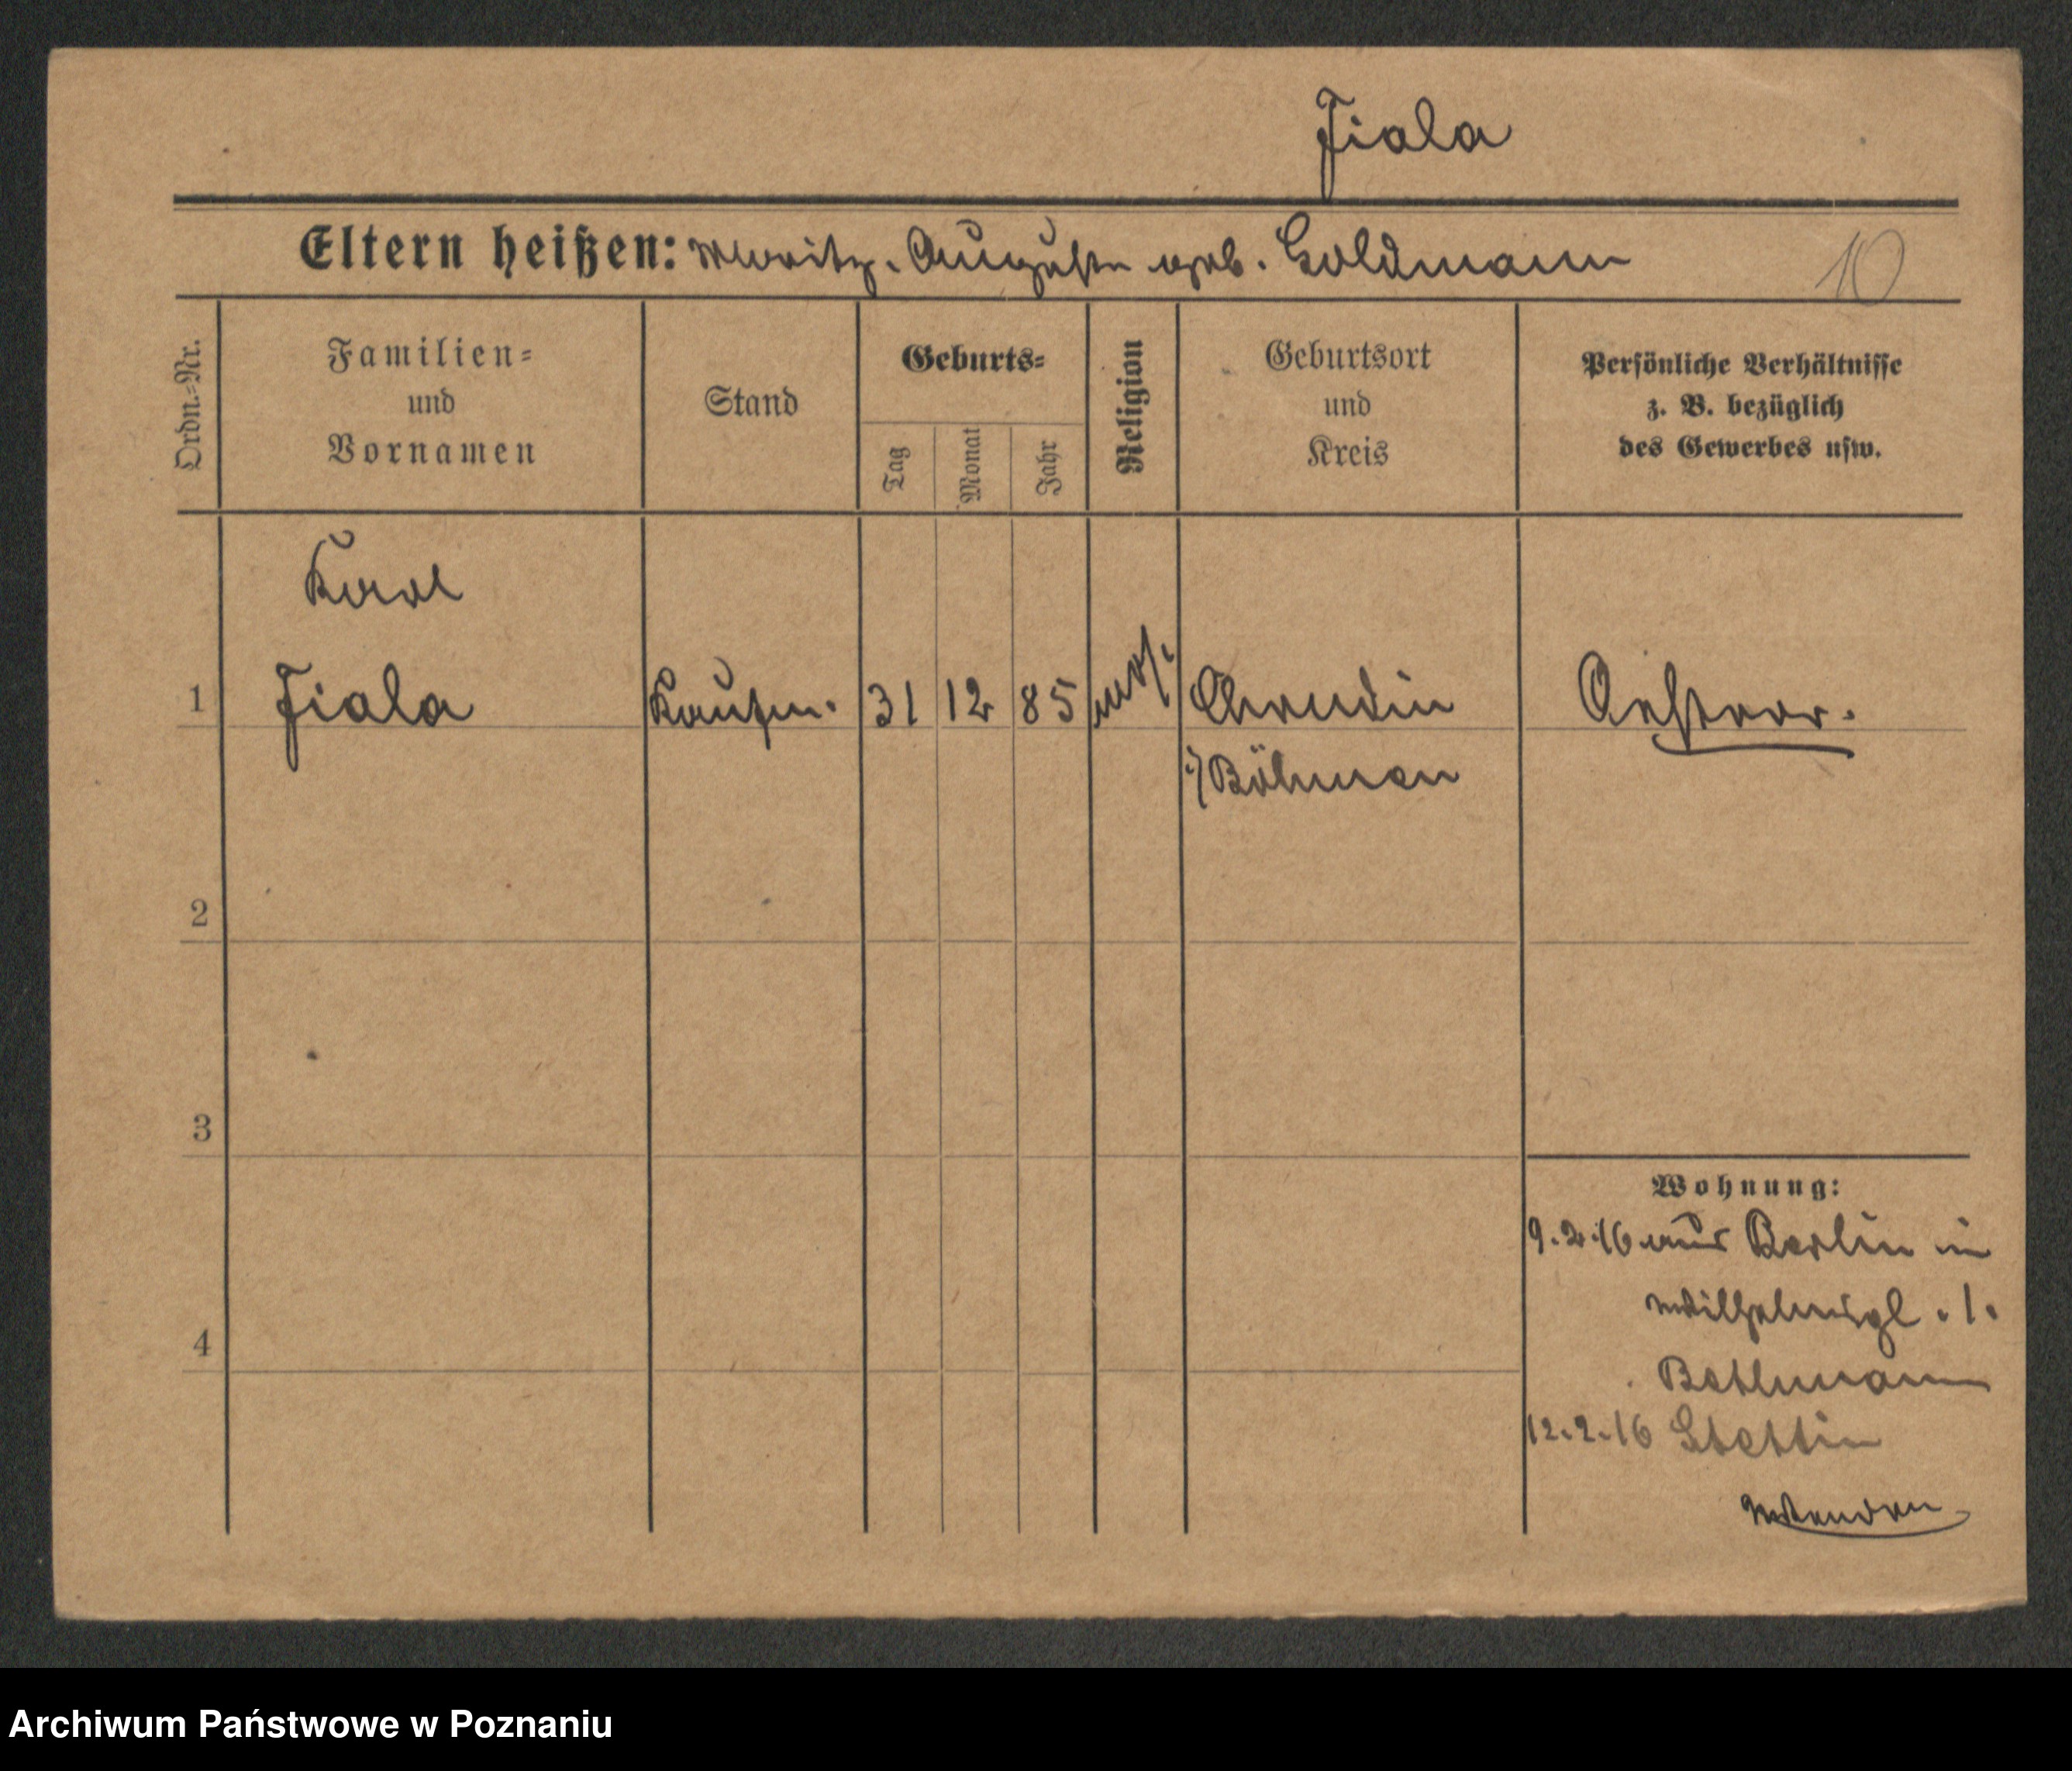 Fiala
Eltern heißen: Moritz. Auguste geb. Goldmann
10
Ordn.=Nr.
Familien=
und
Vornamen
Stand
Geburts=
Tag
Monat
Jahr
Religion
Geburtsort
und
Kreis
Persönliche Verhältnisse
z. B. bezüglich
des Gewerbes usw.
Karl
1 Fiala Kaufm. 31 12 85 mos. Chrudin Oesterr.
i/Böhmen
2
3
4
Wohnung:
9.2.16 aus Berlin in
Wilhelmspl. 1.
Bethmann
12.2.16 Stettin
Wenden
Archiwum Państwowe w Poznaniu